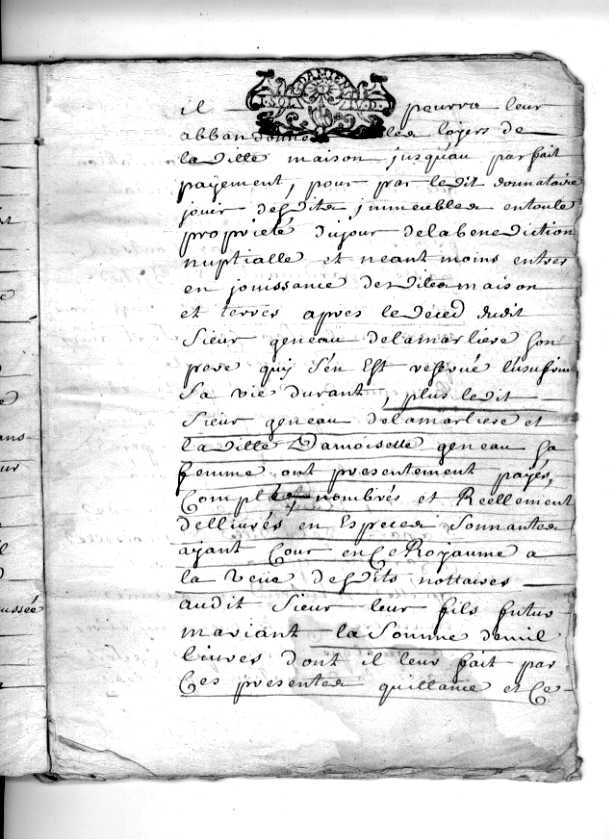 DAMIEN
il pourra leur
abbandonne les loyers de
la ditte maison jusqu'au parfait
payement, pour par le dit donnataire
jouir desdites immeubles en toute
proprieté du jour de la benediction
nuptialle et neant moins entrer
en jouissance desdites maison
et terres apres le deced dudit
Sieur geneau delamarliere son
pere quy s'en Est reservé l'usufruit
Sa vie durant, plus le dit
Sieur geneau delamarliere et
la ditte Damoiselle geneau sa
femme ont presentement payés,
Comptés nombrés et Reellement
dellivrés en Especes Sonnantes
ayant Cour en Ce Royaume a
la veüe desdits nottaires
audit Sieur leur fils futur
mariant la Somme de mil
livres dont il leur fait par
Ces presentes quittance et Ce